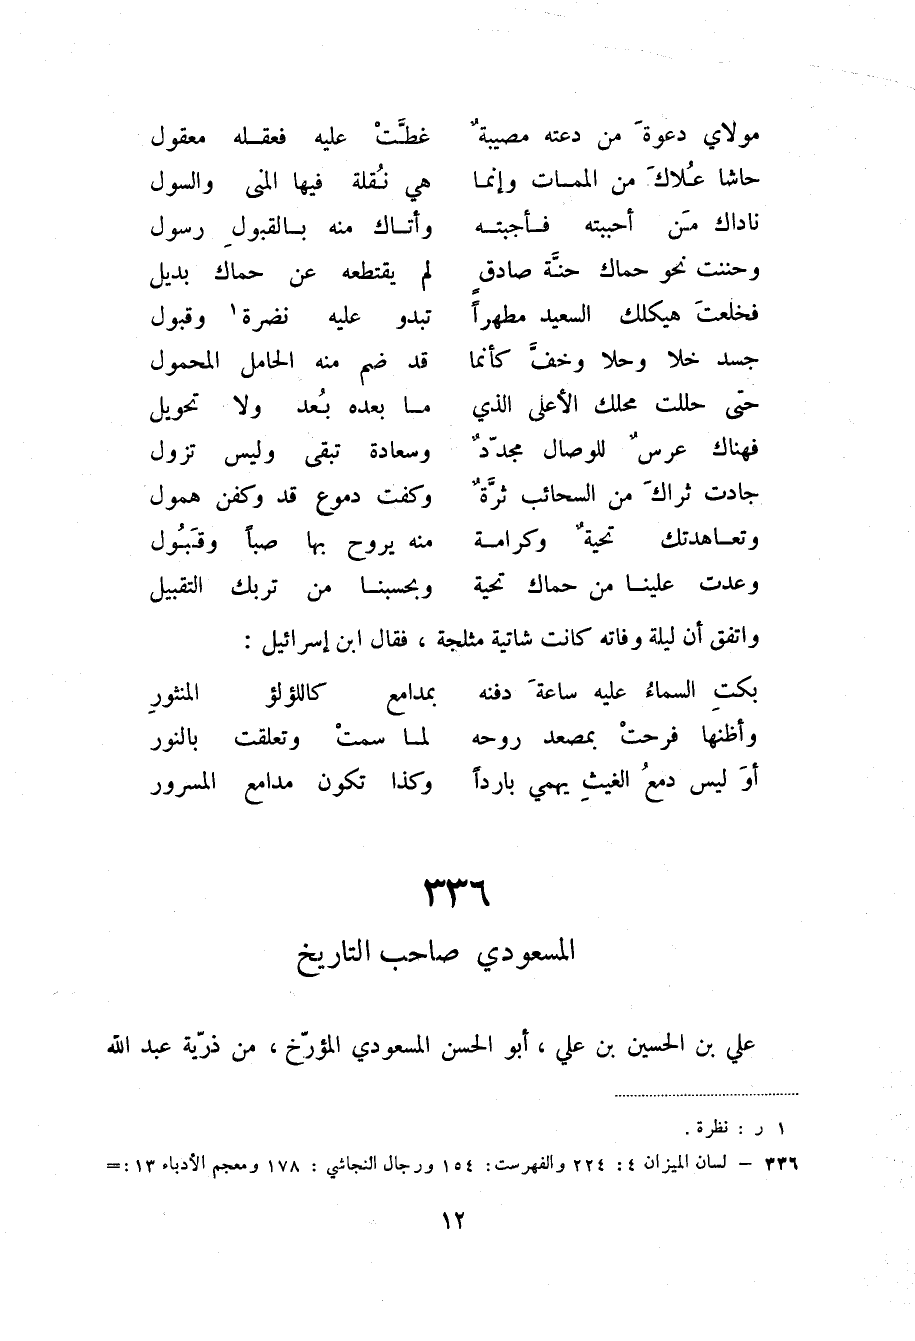 مولاي دعوةَ من دعته مصيبةٌ غطَّتْ عليه فعقله معقول
حاشا عُلاكَ من الممات وإنما هي نُقلة فيها المنى والسول
ناداك مَن أحببته فأجبته وأتاك منه بالقبولِ رسول
وحننت نحو حماك حنَّة صادقٍ لم يقتطعه عن حماك بديل
فخلعتَ هيكلك السعيد مطهراً تبدو عليه نضرة١ وقبول
جسد خلا وحلا وخفَّ كأنما قد ضم منه الحامل المحمول
حتى حللت محلك الأعلى الذي ما بعده بُعد ولا تحويل
فهناك عرسٌ للوصال مجدّدٌ وسعادة تبقى وليس تزول
جادت ثراكَ من السحائب ثرَّةٌ وكفت دموع قد وكفن همول
وتعاهدتك تحيةٌ وكرامة منه يروح بها صباً وقَبُول
وعدت علينا من حماك تحية وبحسبنا من تربك التقبيل
واتفق أن ليلة وفاته كانت شاتية مثلجة ، فقال ابن إسرائيل :
بكتِ السماءُ عليه ساعةَ دفنه بمدامع كاللؤلؤ المنثورِ
وأظنها فرحتْ بمصعد روحه لما سمتْ وتعلقت بالنور
أوَ ليس دمعُ الغيثِ يهمي بارداً وكذا تكون مدامع المسرور
٣٣٦
المسعودي صاحب التاريخ
علي بن الحسين بن علي ، أبو الحسن المسعودي المؤرّخ ، من ذرّية عبد الله
١ ر : نظرة .
٣٣٦ – لسان الميزان ٤ : ٢٢٤ والفهرست : ١٥٤ ورجال النجاشي : ١٧٨ ومعجم الأدباء ١٣ : =
١٢